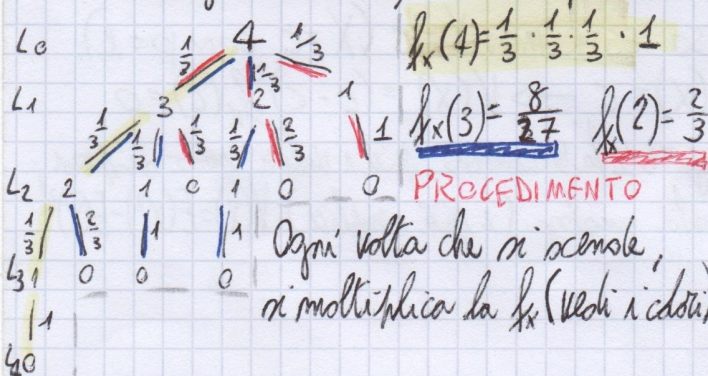 L0 4 fx(4)=1/3 · 1/3 · 1/3 · 1
1/3 1/3 1/3
L1 3 2 1 fx(3)= 8/27 fx(2)= 2/3
1/3 1/3 1/3 1/3 2/3 1
L2 2 1 0 1 0 0 PROCEDIMENTO
1/3 2/3 1 1 Ogni volta che si scende,
L3 1 0 0 0 si moltiplica la fx (vedi i colori)
1
L4 0